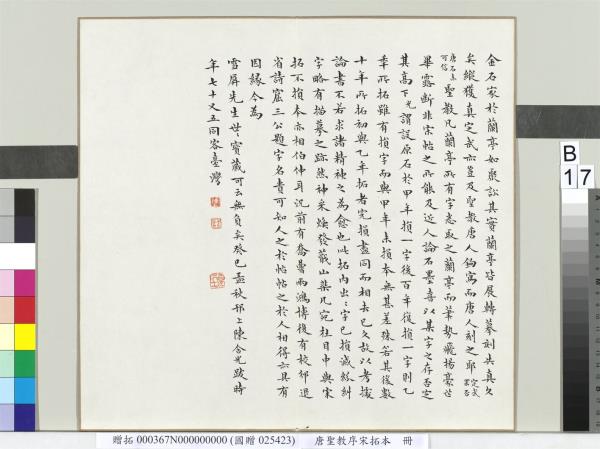 金石家於蘭亭如聚訟其實蘭亭皆展轉摹刻失真久
矣縱獲真定武亦豈及聖教唐人鉤寫而唐人刻之耶
聖教凡蘭亭所有字悉取之蘭亭而筆勢飛揚豪芒
畢露斷非宋帖之所能及近人論石墨喜以某字之存否定
其高下尤謂設原石於甲年損一字後百年復損一字則乙
年所拓雖有損字而與甲年未損本無甚差殊若其後數
十年所拓初與乙年拓者完損盡同而相去已久故以考據
論書不若求諸精神之為愈也此拓內出三字已損誠糾
字略有描摹之跡然神采煥發蕺山棐几宛在目中與宋
拓不損本亦相伯仲耳況前有喬 兩鴻博後有校邠退
省詩窟三公題字名貴可知人之於帖帖之於人相得亦具有
因緣今為
雪屏先生世寶藏可云無負矣癸巳孟秋邗上陳含光跋時
年七十又五同客臺灣
B
17
贈拓 000367N000000000 (國贈 025423) 唐聖教序宋拓本 冊